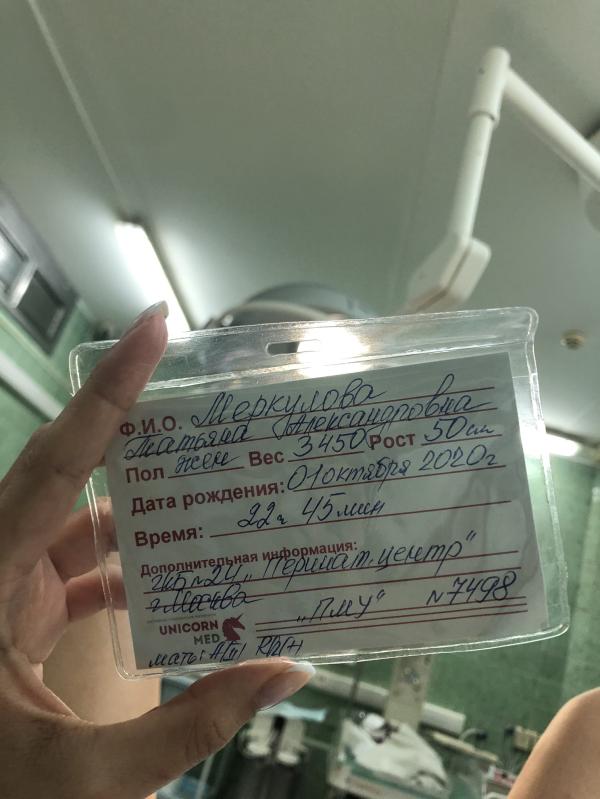 Ф.И.О. Меркулова
Татьяна Александровна
Пол жен Вес 3450 Рост 50 см
Дата рождения: 01 октября 2020г
Время: 22ч 45 мин
Дополнительная информация:
ГКБ №24 „Перинат. центр“
г. Москва
„ПМУ“ №7498
UNICORN
MED
мать: A(II) Rh(+)